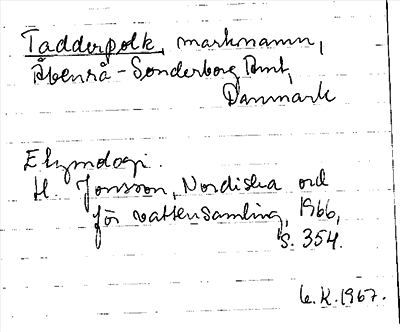 Tadderpolk, marknamn,
Åbenrå-Sønderborg Amt,
Danmark
Etymologi.
H. Jonsson, Nordiska ord
för vattensamling, 1966,
s. 354.
L.K. 1967.